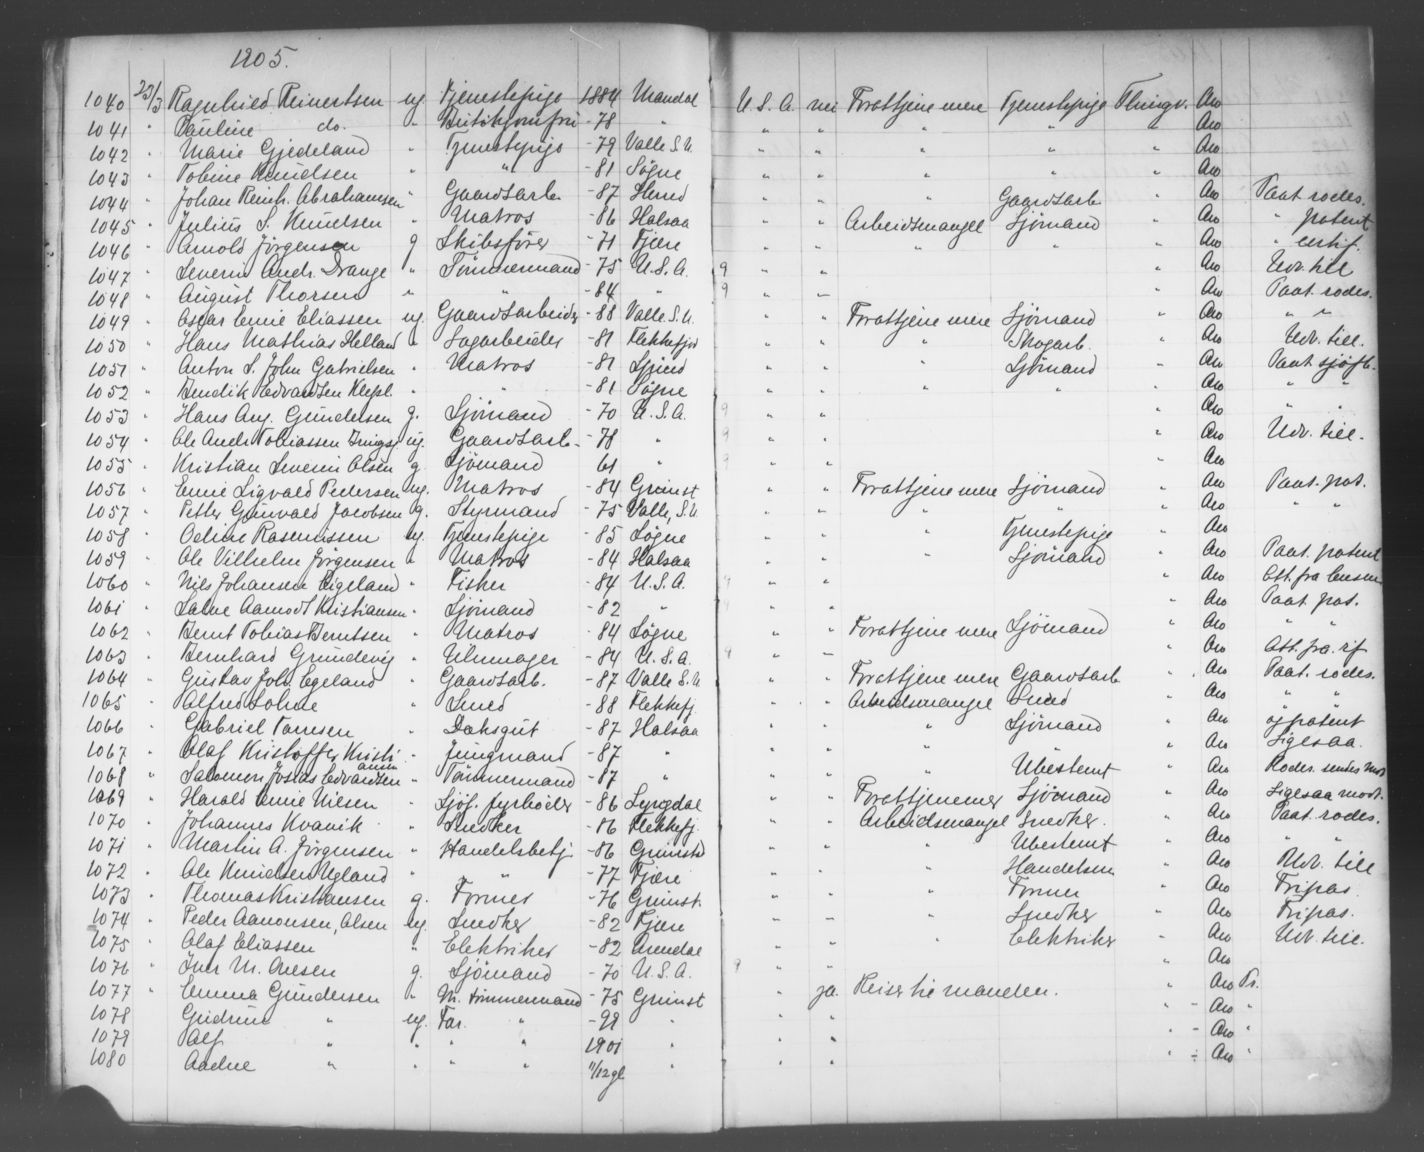 1905.
1040 23/3 Ragnhild Reinertsen ug. Tjenestepige 1884 Mandal U.S.A. nei Forattjene mere Tjenestepige Thingv. Aro
1041 " Pauline do. " Butikjomfru -78 " " " " " " Aro
1042 " Marie Gjedeland " Tjenestepige -79 Valle S.U. " " " " " Aro
1043 " Tobine Knudsen " " -81 Søgne " " " " " Aro
1044 " Johan Reinh. Abrahamsen " Gaardsarb. -87 " " " Gaardsarb " Aro Paat. rodes.
1045 " Julius S. Knudsen " Matros -86 Halsaa " " Arbeidsmangel Sjømand " Aro " patent
1046 " Arnold Jørgensen g Skibsfører -71 Fjære " " " " " Aro " certif.
1047 " Severin Andr. Drange " Tømmermand -75 U.S.A. 9 " " " Aro Udv. till
1048 " August Thorsen " " -84 " 9 " " " Aro Paat. rodes.
1049 " Oscar Emie Eliassen ug. Gaardsarbeider -88 Valle S.U. " " Forattjene mere Sjømand " Aro " "
1050 " Hans Mathias Helland " Sagarbeider -81 Flekkefjor " " " Skogarb. " Aro Udv. till.
1051 " Anton S. John Gabrielsen " Matros -81 " " " Sjømand " Aro Paat. sjøfb.
1052 " Bendik Edvardsen " " -81 Søgne " " " " " Aro " "
1053 " Hans Aug. Gundersen g. Sjømand -70 U.S.A. 9 " " " Aro " "
1054 " Ole Andr. Tobiassen ug. Gaardsarb -78 " 9 " " " Aro Udv. till.
1055 " Kristian Severin Olsen g Sjømand 61 " 9 " " " Aro
1056 " Emie Sigvald Pedersen ug. Matros -84 Grimst " " Forattjene mere Sjømand " Aro Paat. pat.
1057 " Petter Gunvald Jacobsen g. Styrmand -75 Valle, S.U " " " " " Aro " "
1058 " Odine Rasmussen ug. Tjenestepige -85 Søgne " " " Tjenestepige " Aro
1059 " Ole Vilhelm Jørgensen " Matros -84 Halsaa " " " Sjømand " Aro Paat. patent
1060 " Nils Johansen Eigeland " Fisker -84 U.S.A. 9 " " " Aro Att. fra
1061 " Salve Aamodt Kristiansen " Sjømand -82 " 9 " " Aro Paat. pat.
1062 " Bernt Tobias Berntsen " Matros -84 Søgne " " Forattjene mere Sjømand " Aro " "
1063 " Bernhard Grundevig " Uhrmager -84 U.S.A. 9 " " " Aro Att. fra
1064 " Gustav Joh. Egeland " Gaardsarb. -87 Valle S.U " " Forattjene mere Gaardsarb " Aro Paat. rodes.
1065 " Alfred Sohne " Smed -88 Flekkefj. " " Arbeidsmangel Smed " Aro " "
1066 " Gabriel Tamsen " Daksgut -87 Halsaa " " " Sjømand " Aro og patent
1067 " Olaf Kristoffer Kristiansen " Jungmand -87 " " " " " " Aro Ligesaa.
1068 " Salomon Josias Edvardsen " Tømmermand -87 " " " " Ubestemt " Aro Rodes. sendes
1069 " Harald Emie Nilsen " Sjøf. fyrbøder -86 Lyngdal " " Forattjenemer Sjømand " Aro Ligesaa
1070 " Johannes Kvavik " Snedker -86 Flekkefj. " " Arbeidsmangel Snedker. " Aro Paat. rodes.
1071 " Martin A. Jørgensen " Handelsbetj. -86 Grimstd " " " Ubestemt " Aro " "
1072 " Ole Knudsen Ugland " " -77 Fjære " " " Handelsm " Aro Udv. till
1073 " Thomas Kristiansen g. Former -76 Grimst. " " " Former " Aro Fripas.
1074 " Peder Aanonsen, Olsen ug. Snedker -82 Fjære " " " Snedker " Aro Fripas.
1075 " Olaf Eliassen " Elektriker -82 Arendal " " " Elektriker " Aro Udv. till.
1076 " Iver M. Onesen g. Sjømand -70 U.S.A. 9 " " " Aro
1077 " Emma Gundersen " M. tømmermand -75 Grimst " ja. Reiser til manden. Aro Pr.
1078 Gudrun " ug. Far. " -99 " " " " - Aro "
1079 Alf " " " " 1901 " " " " - Aro "
1080 Aadne " " " " 11/12gl " " " " ÷ Aro "